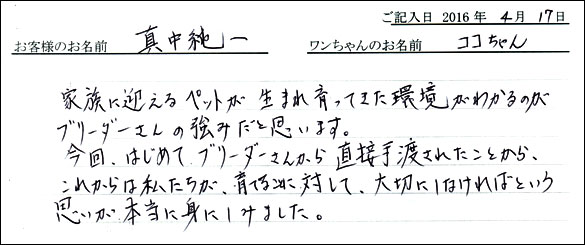 ご記入日 2016年 4月 17日
お客様のお名前 真中純一 ワンちゃんのお名前 ココちゃん
家族に迎えるペットが 生まれ育ってきた環境がわかるのが
ブリーダーさんの強みだと思います。
今回、はじめて ブリーダーさんから 直接手渡されたことから、
これからは私たちが、育てることに対して、大切にしなければという
思いが 本当に身にしみました。